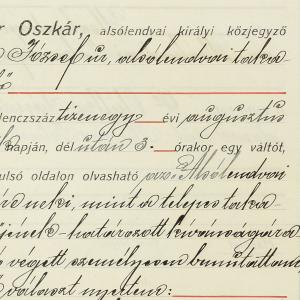 r Oszkár, alsólendvai királyi közjegyző
József úr, alsólendvai taka-
lenczszáz tizenegy évi augusztus
k napján, dél után 3. órakor egy váltót,
ulsó oldalon olvasható az: Alsólendvai
neki, mint a telepes taka-
jének határozott kívánságára
végett személyesen bemutattam
választ nyertem: